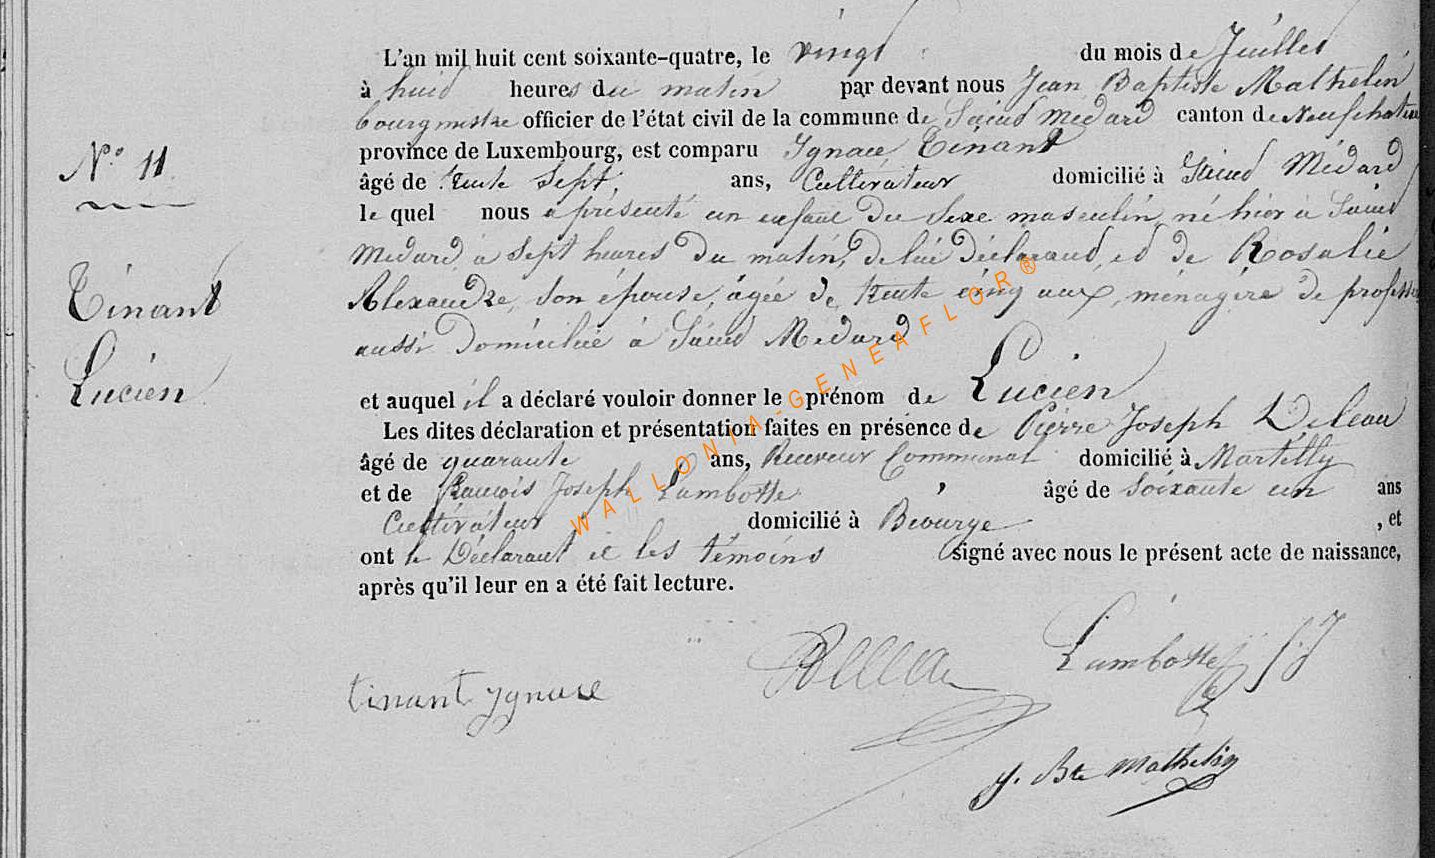 L'an mil huit cent soixante-quatre, le vingt du mois de Juillet
à huit heures du matin par devant nous Jean Baptiste Mathelin
bourgmestre officier de l'état civil de la commune de Saint Médard canton de Neufchateau
province de Luxembourg, est comparu Ignace Tinant
N.° 11
âgé de trente sept, ans, Cultivateur domicilié à Saint Médard
le quel nous a présenté un enfant du sexe masculin, né hier à Saint
Médard, à sept heures du matin, de lui déclarant, et de Rosalie
Tinant
Alexandre, son épouse, âgée de trente cinq ans, ménagère de profession
aussi domiciliée à Saint Médard
Lucien
et auquel il a déclaré vouloir donner le prénom de Lucien
Les dites déclaration et présentation faites en présence de Pierre Joseph Deleau
âgé de quarante ans, Receveur Communal domicilié à Martilly
et de François Joseph Lambotte, âgé de soixante un ans
Cultivateur domicilié à Biourge, et
ont le Déclarant et les témoins signé avec nous le présent acte de naissance,
après qu'il leur en a été fait lecture.
tinant ygnace Lambotte f. J
J. Bte Mathelin
WALLONIA-GENEAFLOR®